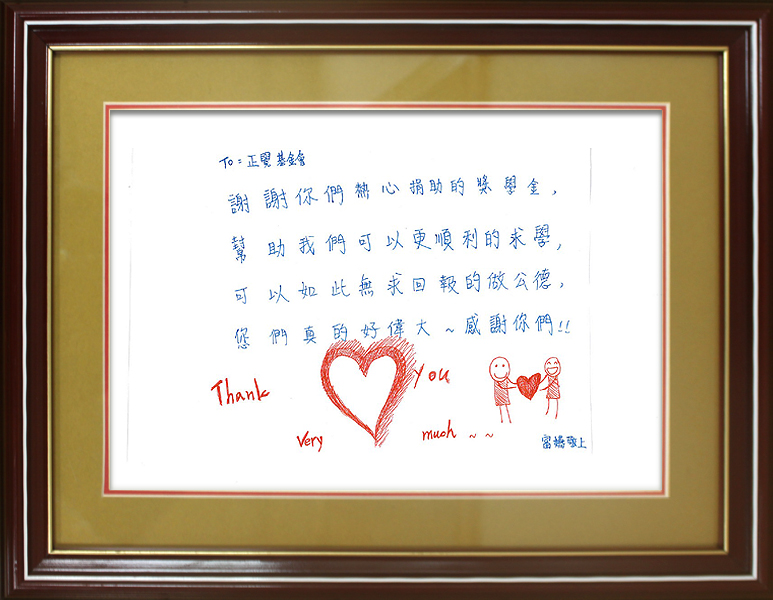 To = 正覺基金會
謝謝你們熱心捐助的獎學金,
幫助我們可以更順利的求學,
可以如此無求回報的做公德,
您們真的好偉大~感謝你們!!
Thank you
very much ~ ~
敬上